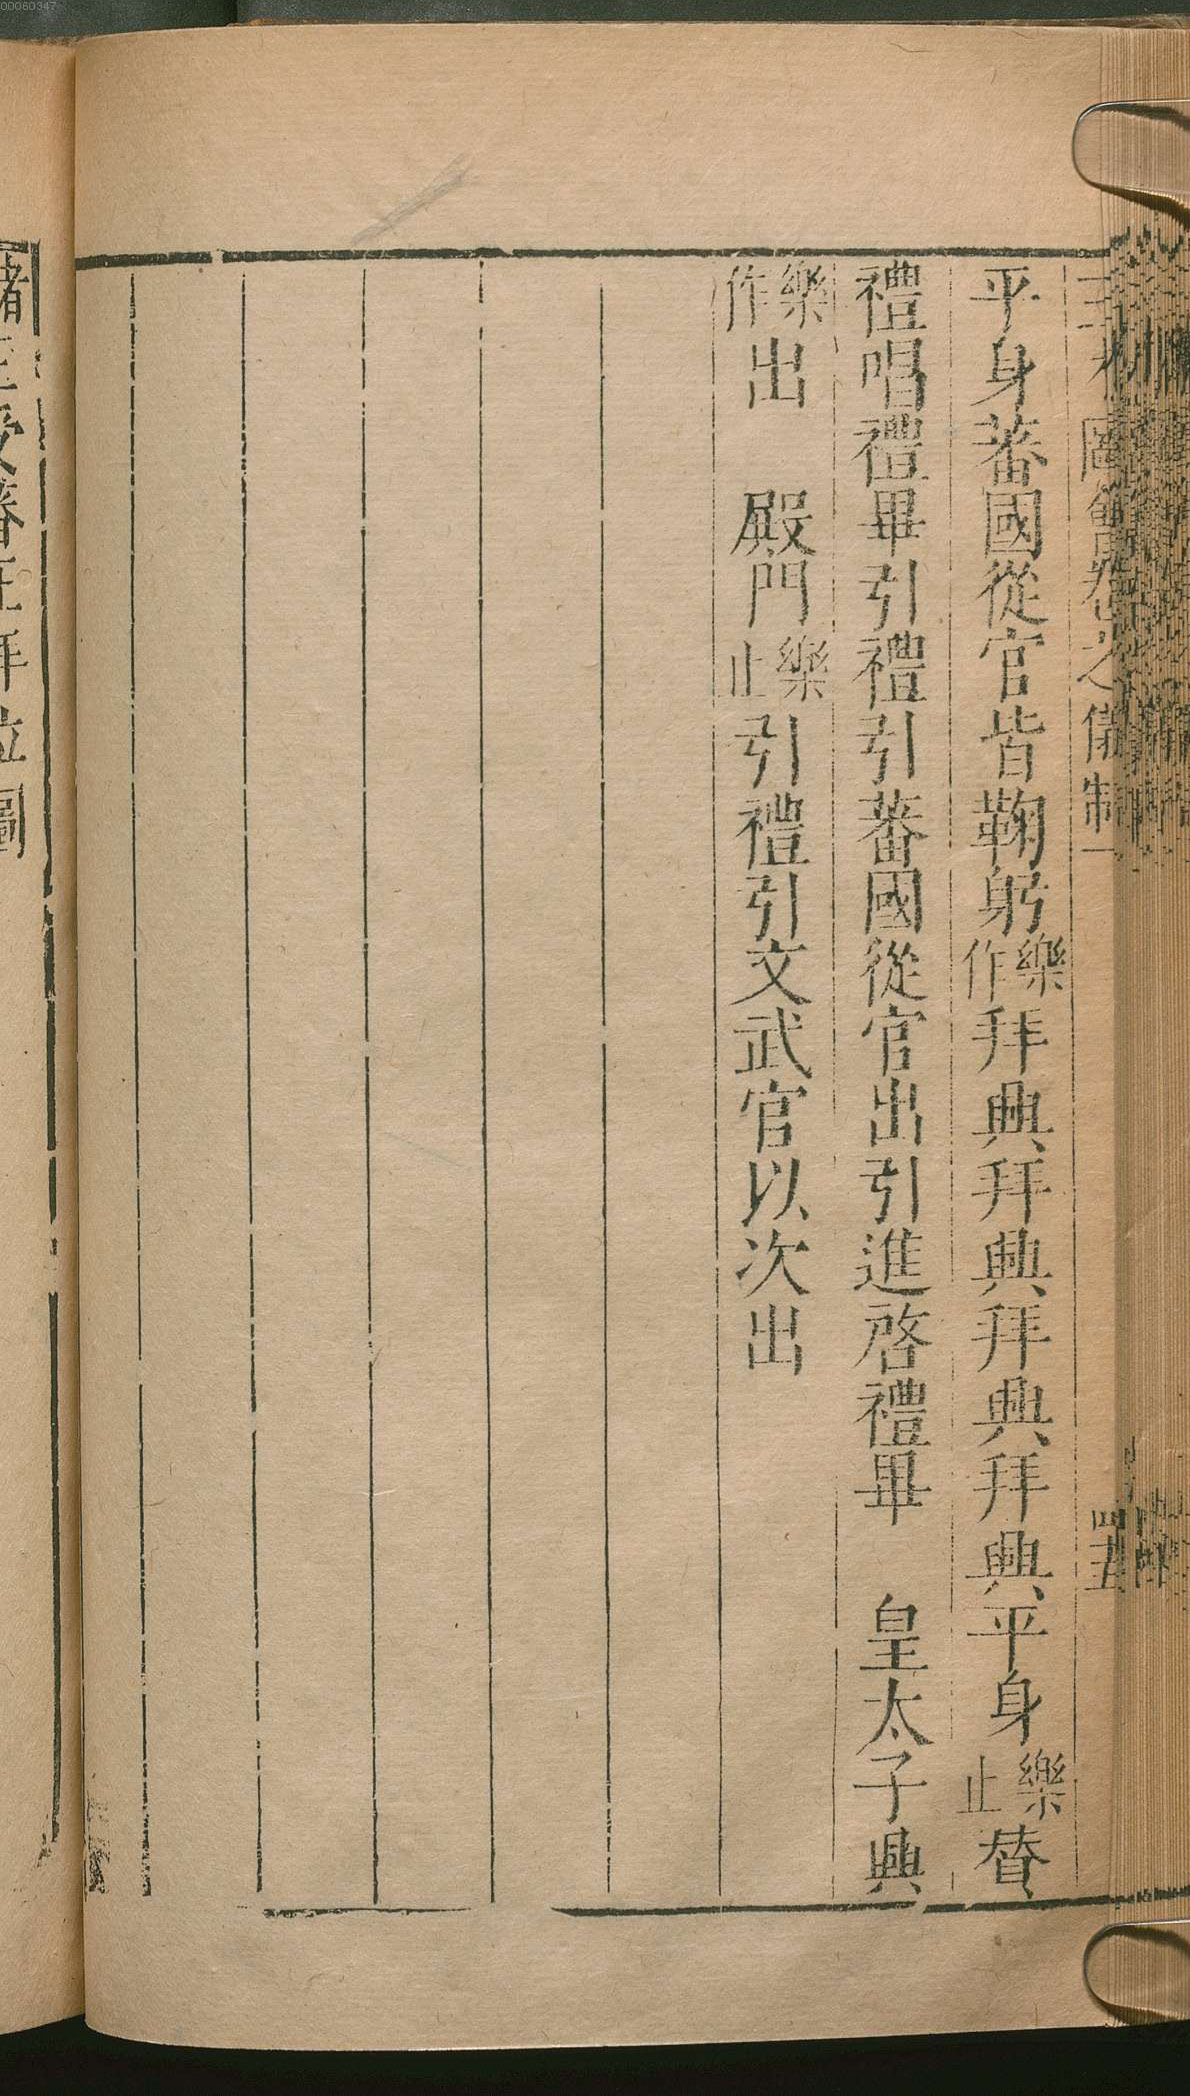 平身蕃國從官皆鞠躬樂作拜興拜興拜興拜興平身樂止賛
禮唱禮畢引禮引蕃國從官出引進啓禮畢　皇太子興
樂作出　殿門樂止引禮引文武官以次出
圖會卷之儀制一
四十五
00060347